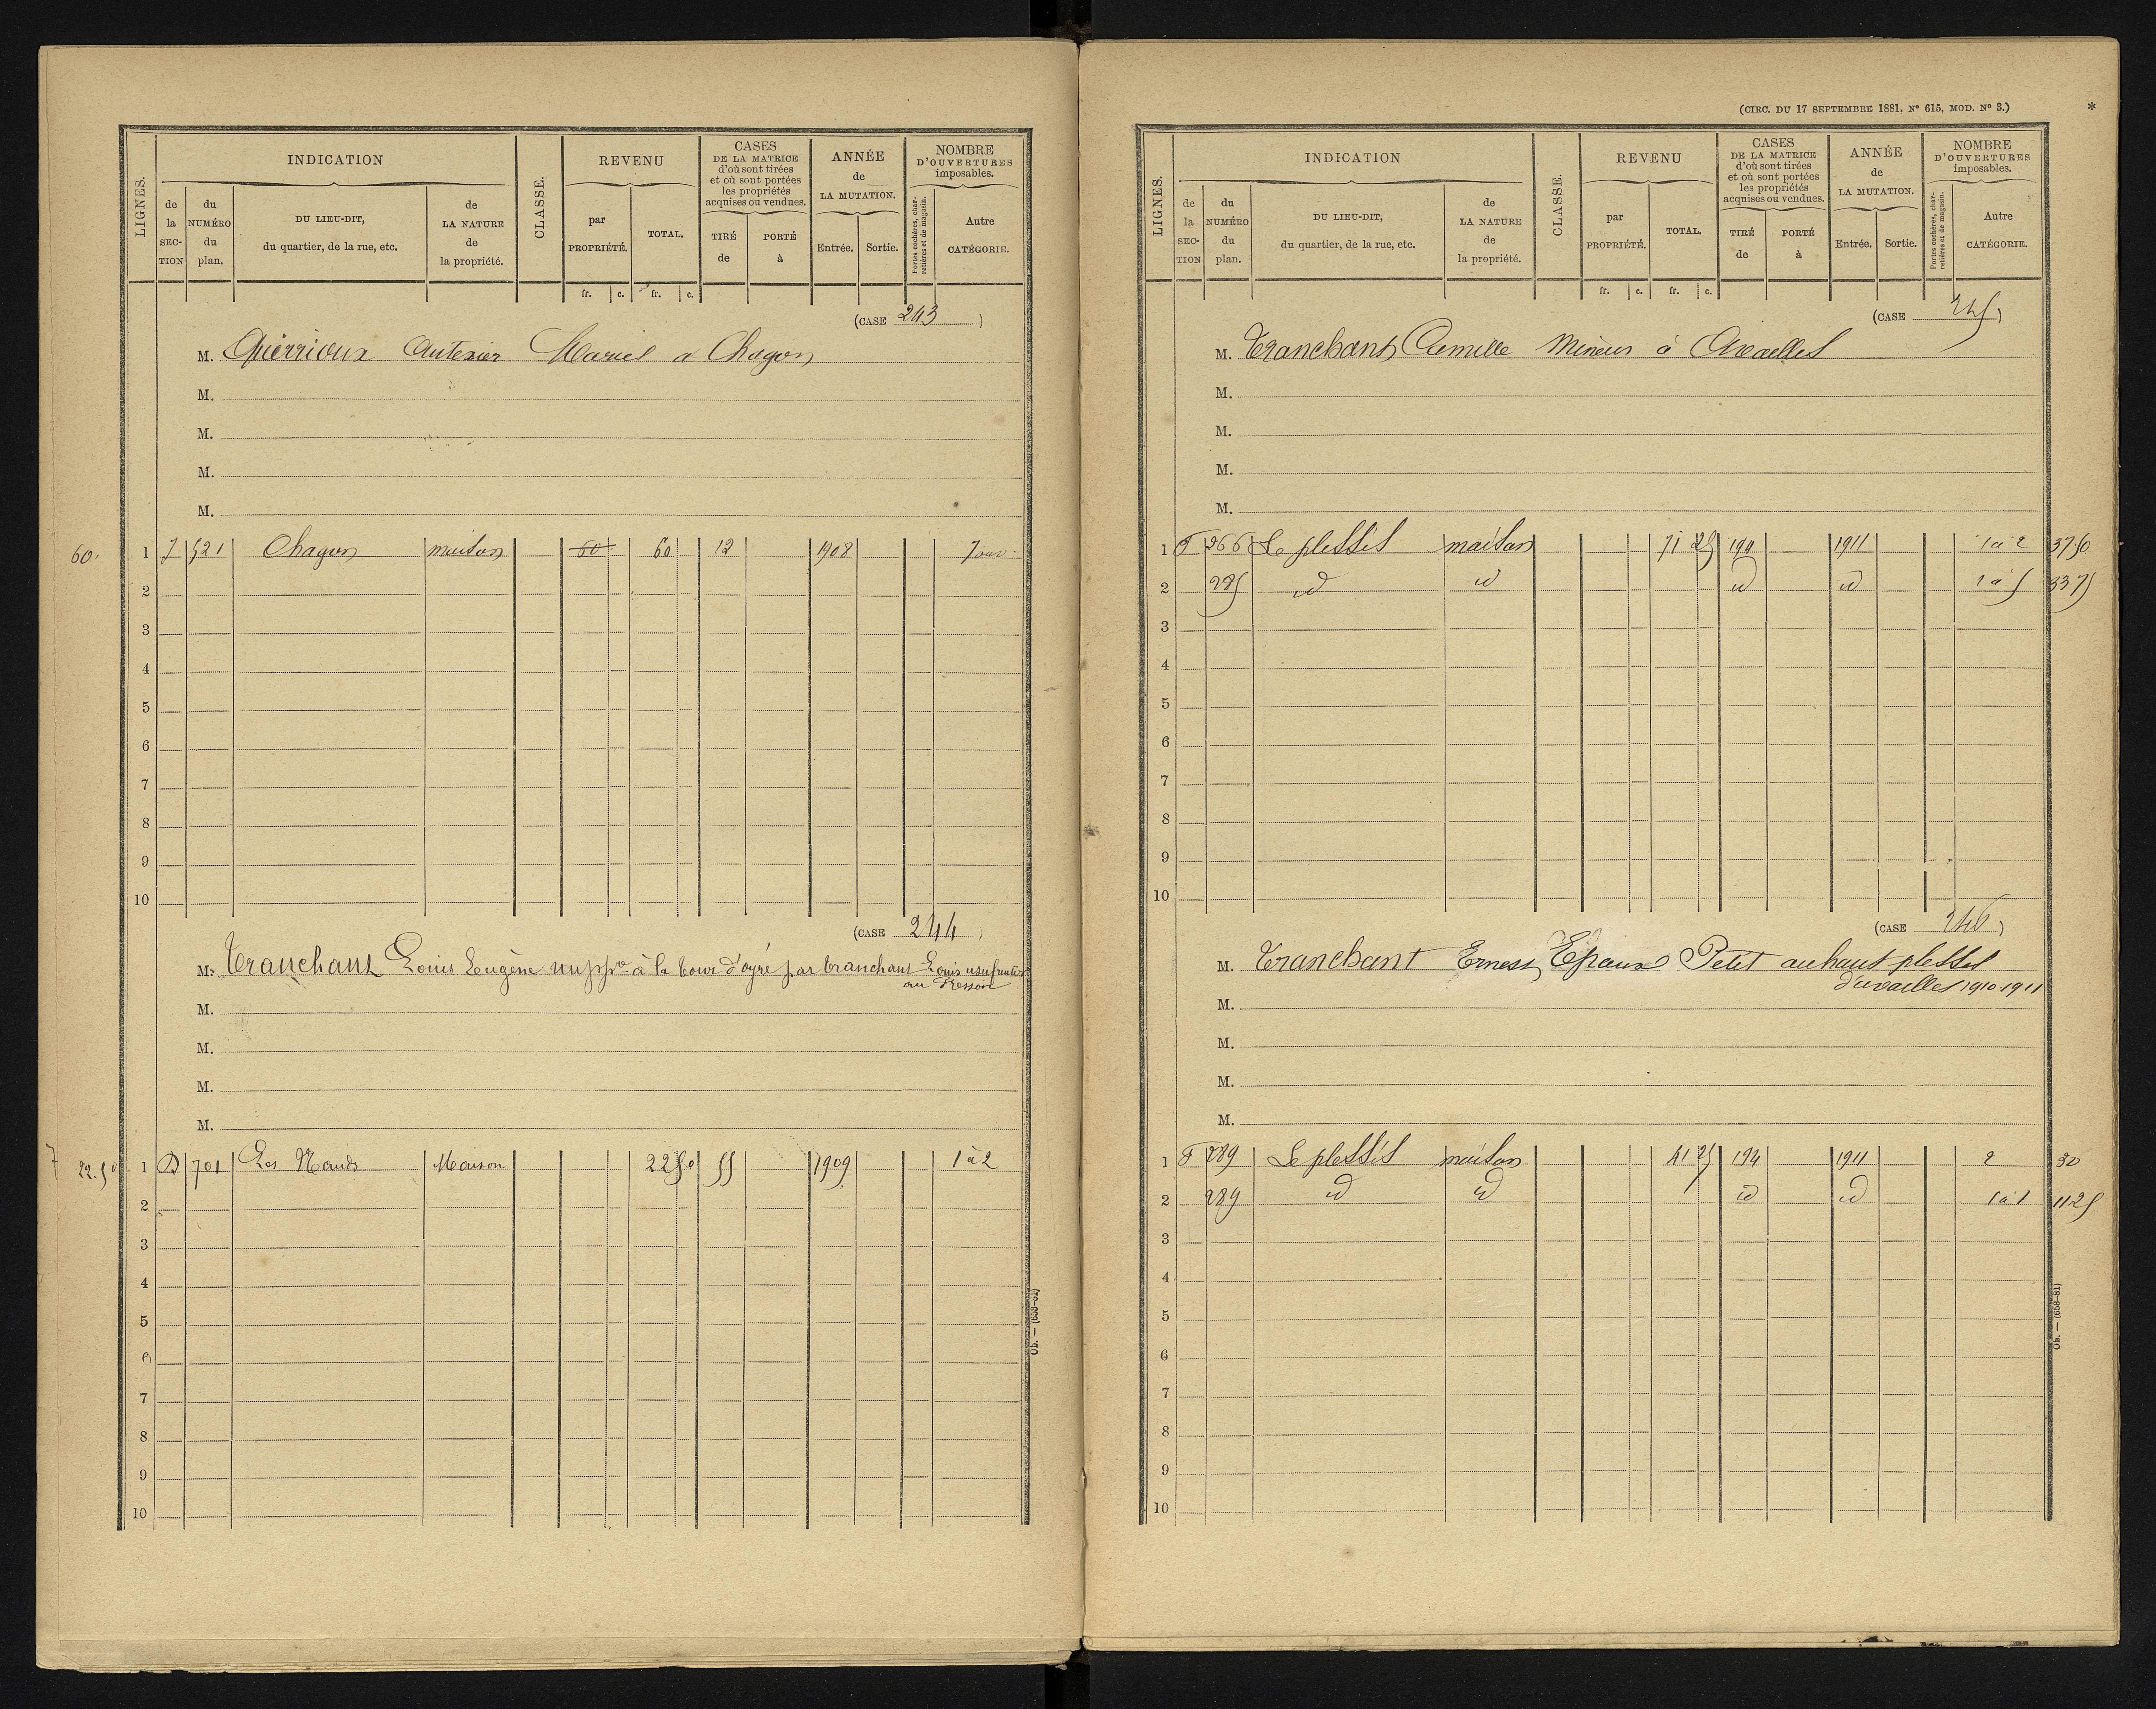 LIGNES.
INDICATION
de la SECTION
du NUMÉRO du plan.
DU LIEU-DIT, du quartier, de la rue, etc.
de LA NATURE de la propriété.
CLASSE.
REVENU
par PROPRIÉTÉ.
TOTAL.
fr. c. fr. c.
CASES DE LA MATRICE d'où sont tirées et où sont portées les propriétés acquises ou vendues.
TIRÉ de
PORTÉ à
ANNÉE de LA MUTATION.
Entrée. Sortie.
NOMBRE D'OUVERTURES imposables.
Portes cochères, charretières et de magasin.
Autre CATÉGORIE.
(CASE 243)
M. Guérrioux Marcel a Chagon
M.
M.
M.
M.
60. 1 521 Chagon maison 60 60 12 1908
2
3
4
5
6
7
8
9
10
(CASE 244)
M. Tranchant Louis Eugène nu pppre à la tour d'oyré par tranchant Louis usufruitier
au
M.
M.
M.
M.
7 22.50 1 D 701 Les Maison 22 50 55 1909 1 à 2
2
3
4
5
6
7
8
9
10
Ob. — (653-81)
(CIRC. DU 17 SEPTEMBRE 1881, N° 615, MOD. N° 3.) *
LIGNES.
INDICATION
de la SECTION
du NUMÉRO du plan.
DU LIEU-DIT, du quartier, de la rue, etc.
de LA NATURE de la propriété.
CLASSE.
REVENU
par PROPRIÉTÉ.
TOTAL.
fr. c. fr. c.
CASES DE LA MATRICE d'où sont tirées et où sont portées les propriétés acquises ou vendues.
TIRÉ de
PORTÉ à
ANNÉE de LA MUTATION.
Entrée. Sortie.
NOMBRE D'OUVERTURES imposables.
Portes cochères, charretières et de magasin.
Autre CATÉGORIE.
(CASE 245)
M. Tranchant Camille Mineur à Availles
M.
M.
M.
M.
1 F 266 Le plessis maison 71 25 194 1911 1 à 2 37 50
2 285 id id id id 1 à 5 33 75
3
4
5
6
7
8
9
10
(CASE 246)
M. Tranchant Ernest Epoux Petit au haut plessis
d'availles 1910-1911
M.
M.
M.
M.
1 F 289 Le plessis maison 41 25 194 1911 2 30
2 289 id id id id 1 à 1 11 25
3
4
5
6
7
8
9
10
Ob. — (653-81)